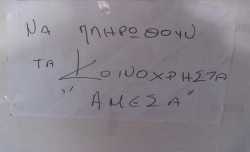 ΝΑ ΠΛΗΡΩΘΟΥΝ
ΤΑ ΚΟΙΝΟΧΡΗΣΤΑ
" ΑΜΕΣΑ "